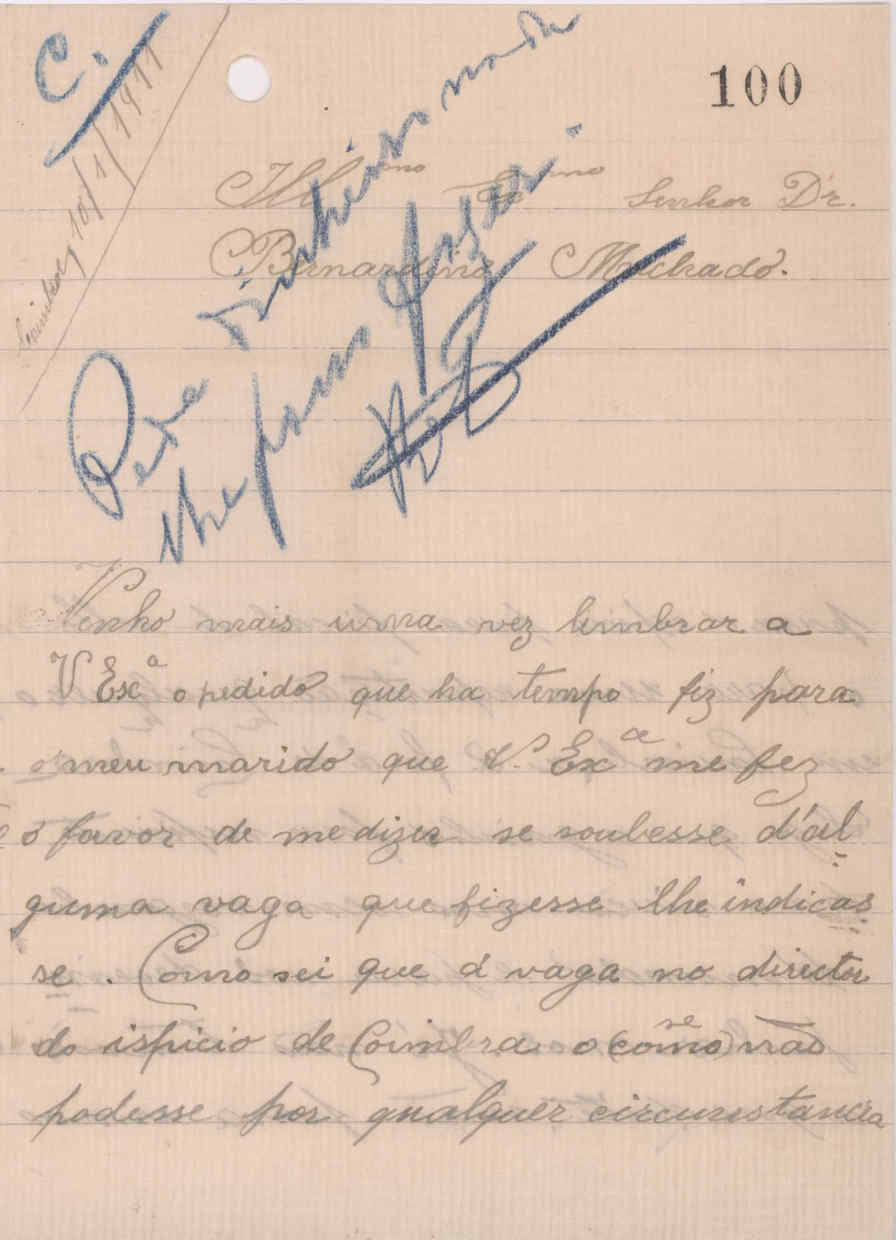 C.
10/1/1911
100
Ill.mo Ex.mo Senhor Dr.
Bernardino Machado.
Pesa nada
lhe posso fazer.
Venho mais uma vez limbrar a
V Exª o pedido que ha tempo fiz para
o meu marido que V. Exª me fez
o favor de me dizer se soubesse d'al
guma vaga que fizesse lhe indicas
se. Como sei que á vaga no director
do ispicio de Coimbra o (como) se não
podesse por qualquer circunstancia